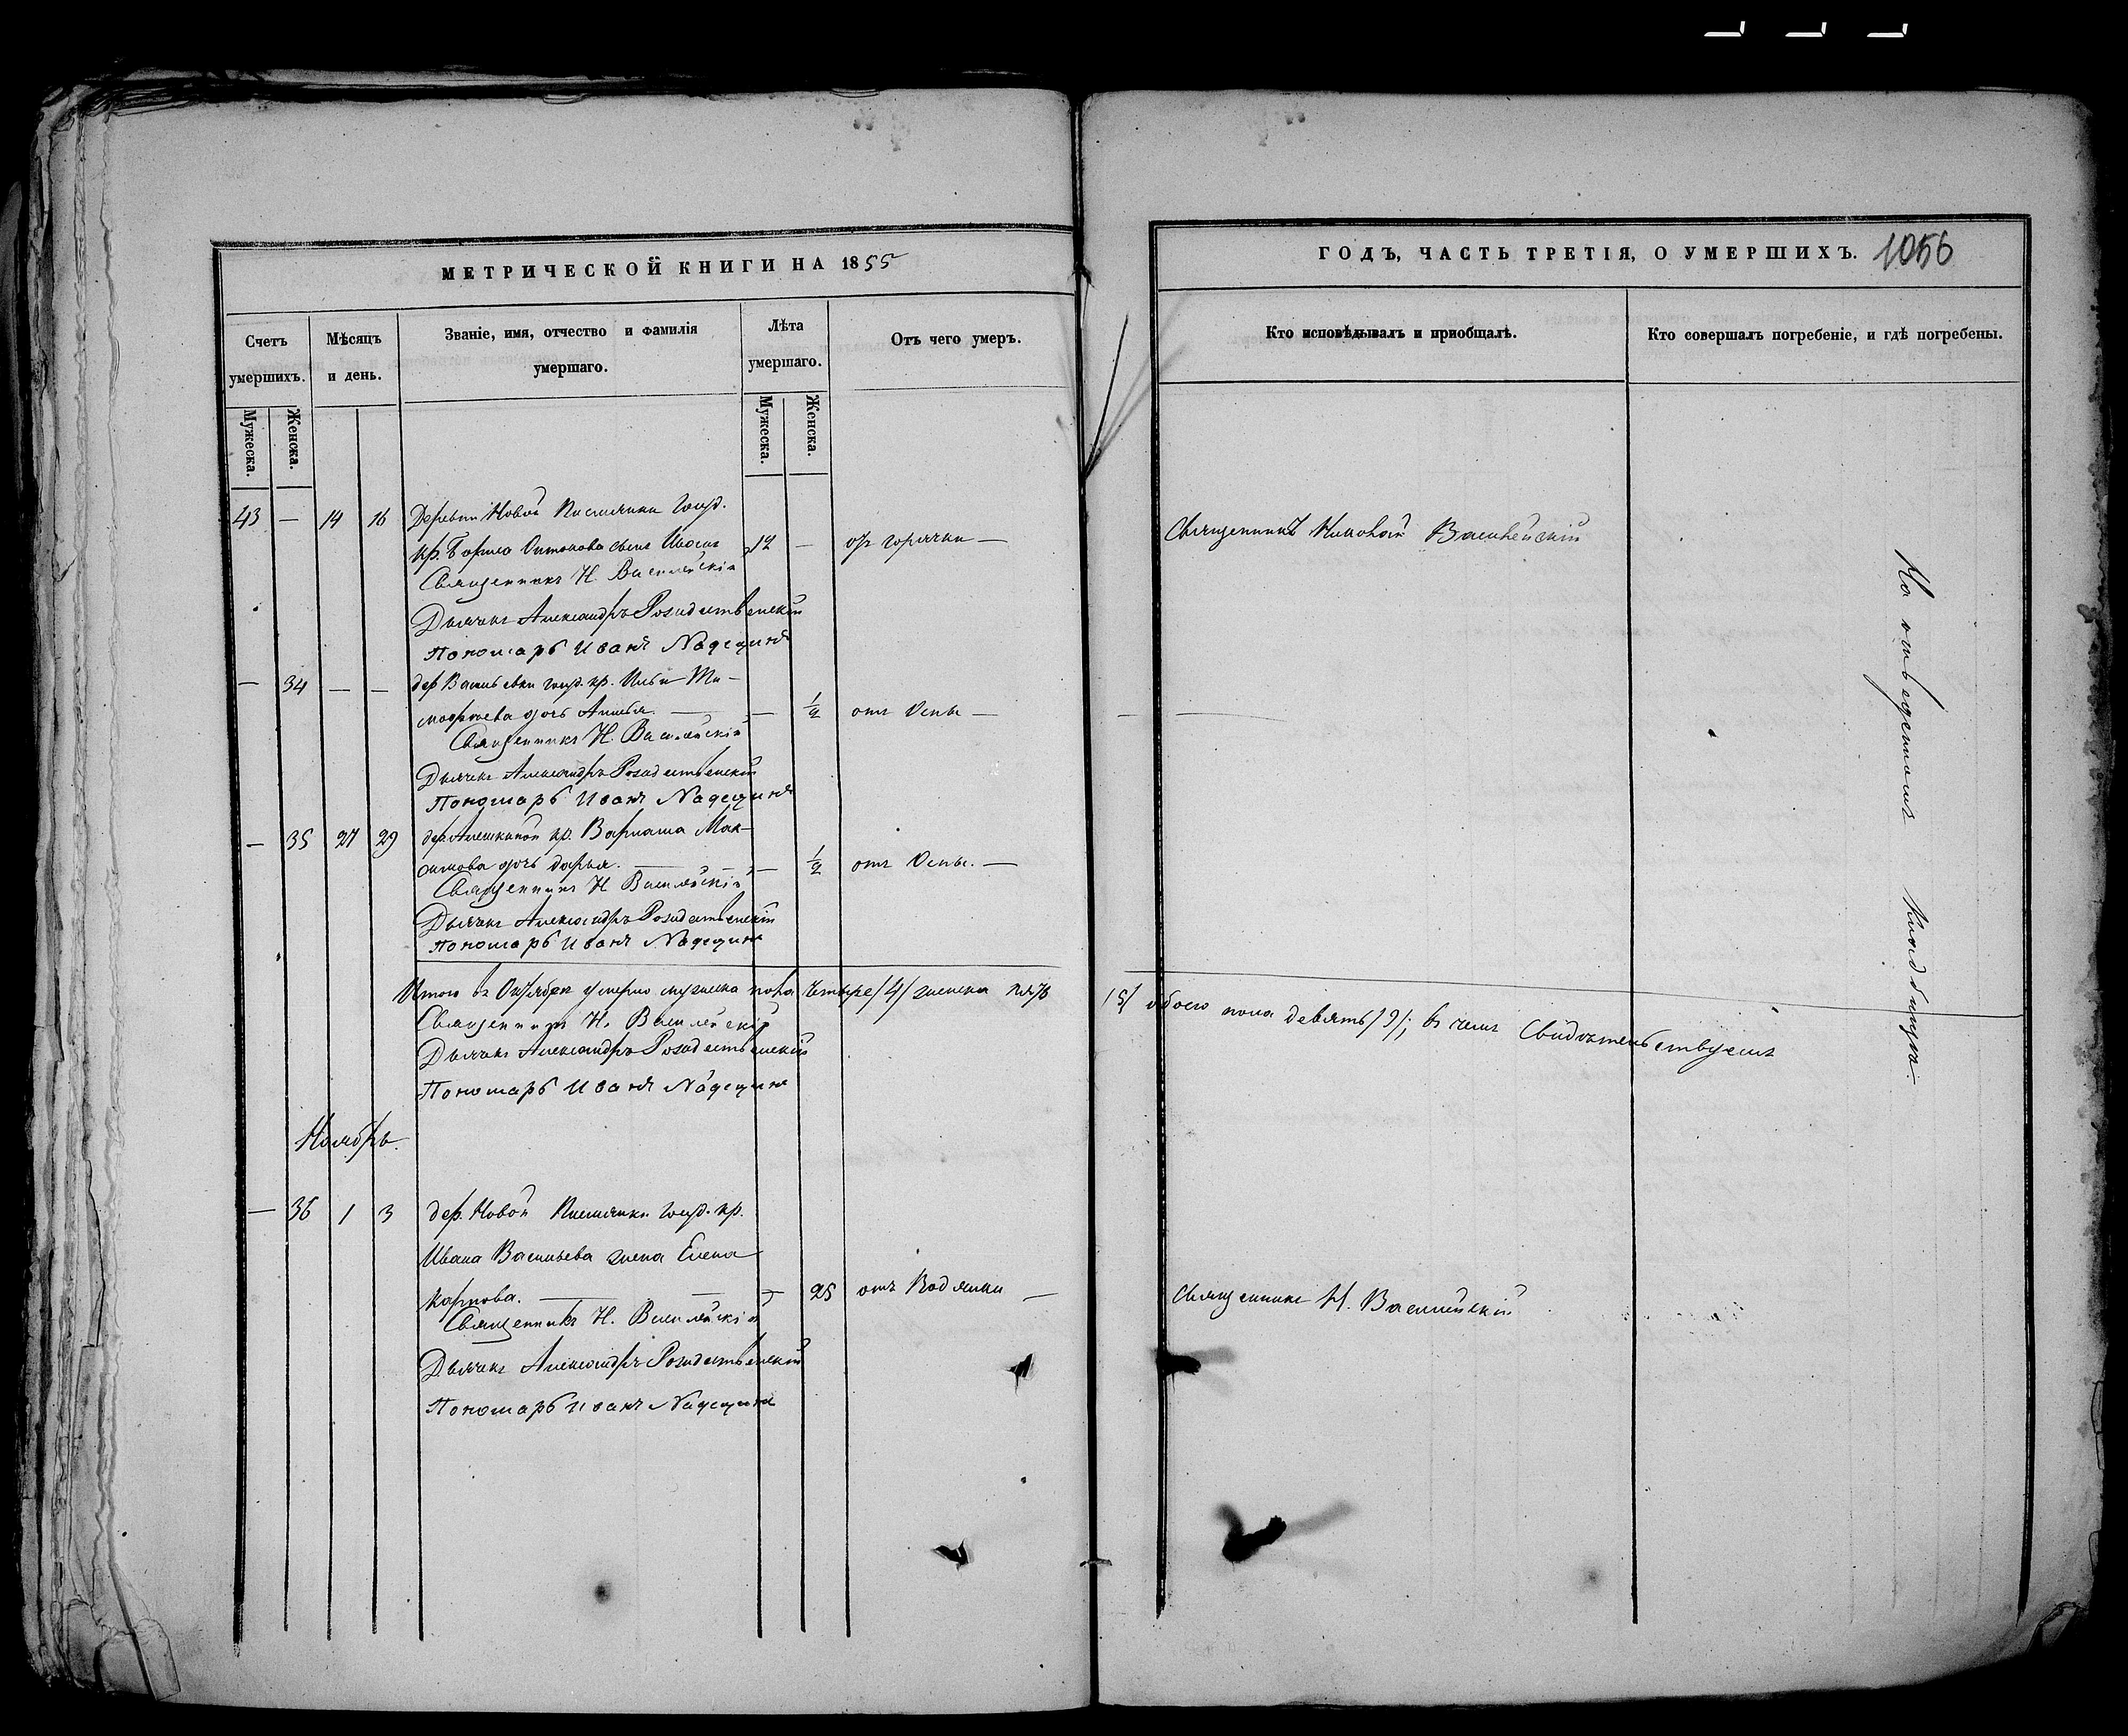 МЕТРИЧЕСКОЙ КНИГИ НА 1855
Счетъ умершихъ.
Мѣсяцъ и день.
Званіе, имя, отчество и фамилія
умершаго.
Лѣта умершаго.
Отъ чего умеръ.
Мужеска.
Женска.
Мужеска.
Женска.
43 — 14 16 Деревни Новой Письмянки госуд.
кр. Бориса Антонова сынъ 12 — отъ горячки —
Священникъ Н. Василейскій
Дьячекъ Александръ Рождественскій
Пономарь Иванъ Надеждинъ
— 34 — — дер Васильевки госуд. кр. Ильи Ти-
мофеева дочь — 1/2 отъ Оспы —
Священникъ Н. Василейскій
Дьячекъ Александръ Рождественскій
Пономарь Иванъ Надеждинъ
— 35 27 29 дер. Алешкиной кр. Мак-
симова дочь Дарья. — 1/2 отъ Оспы. —
Священникъ Н Василейскій
Дьячекъ Александръ Рождественскій
Пономарь Иванъ Надеждинъ
Итого въ Октябрѣ умерло мужеска пола четыре /4/ женска пять
Священникъ Н. Василейскій
Дьячекъ Александръ Рождественскій
Пономарь Иванъ Надеждинъ
Ноябрь.
— 36 1 3 дер. Новой Письмянки госуд. кр.
Ивана Васильева жена Елена
Карпова. — 25 отъ Водянки —
Священникъ Н. Василейскій
Дьячекъ Александръ Рождественскій
Пономарь Иванъ Надеждинъ
ГОДЪ, ЧАСТЬ ТРЕТІЯ, О УМЕРШИХЪ. 1056
Кто исповѣдывалъ и приобщалъ.
Кто совершалъ погребеніе, и гдѣ погребены.
Священникъ Николай Василейскій
/5/ обоего пола девять /9/; въ чемъ Свидѣтельствуемъ
Священникъ Н. Василейскій
На отведенномъ кладбищѣ.